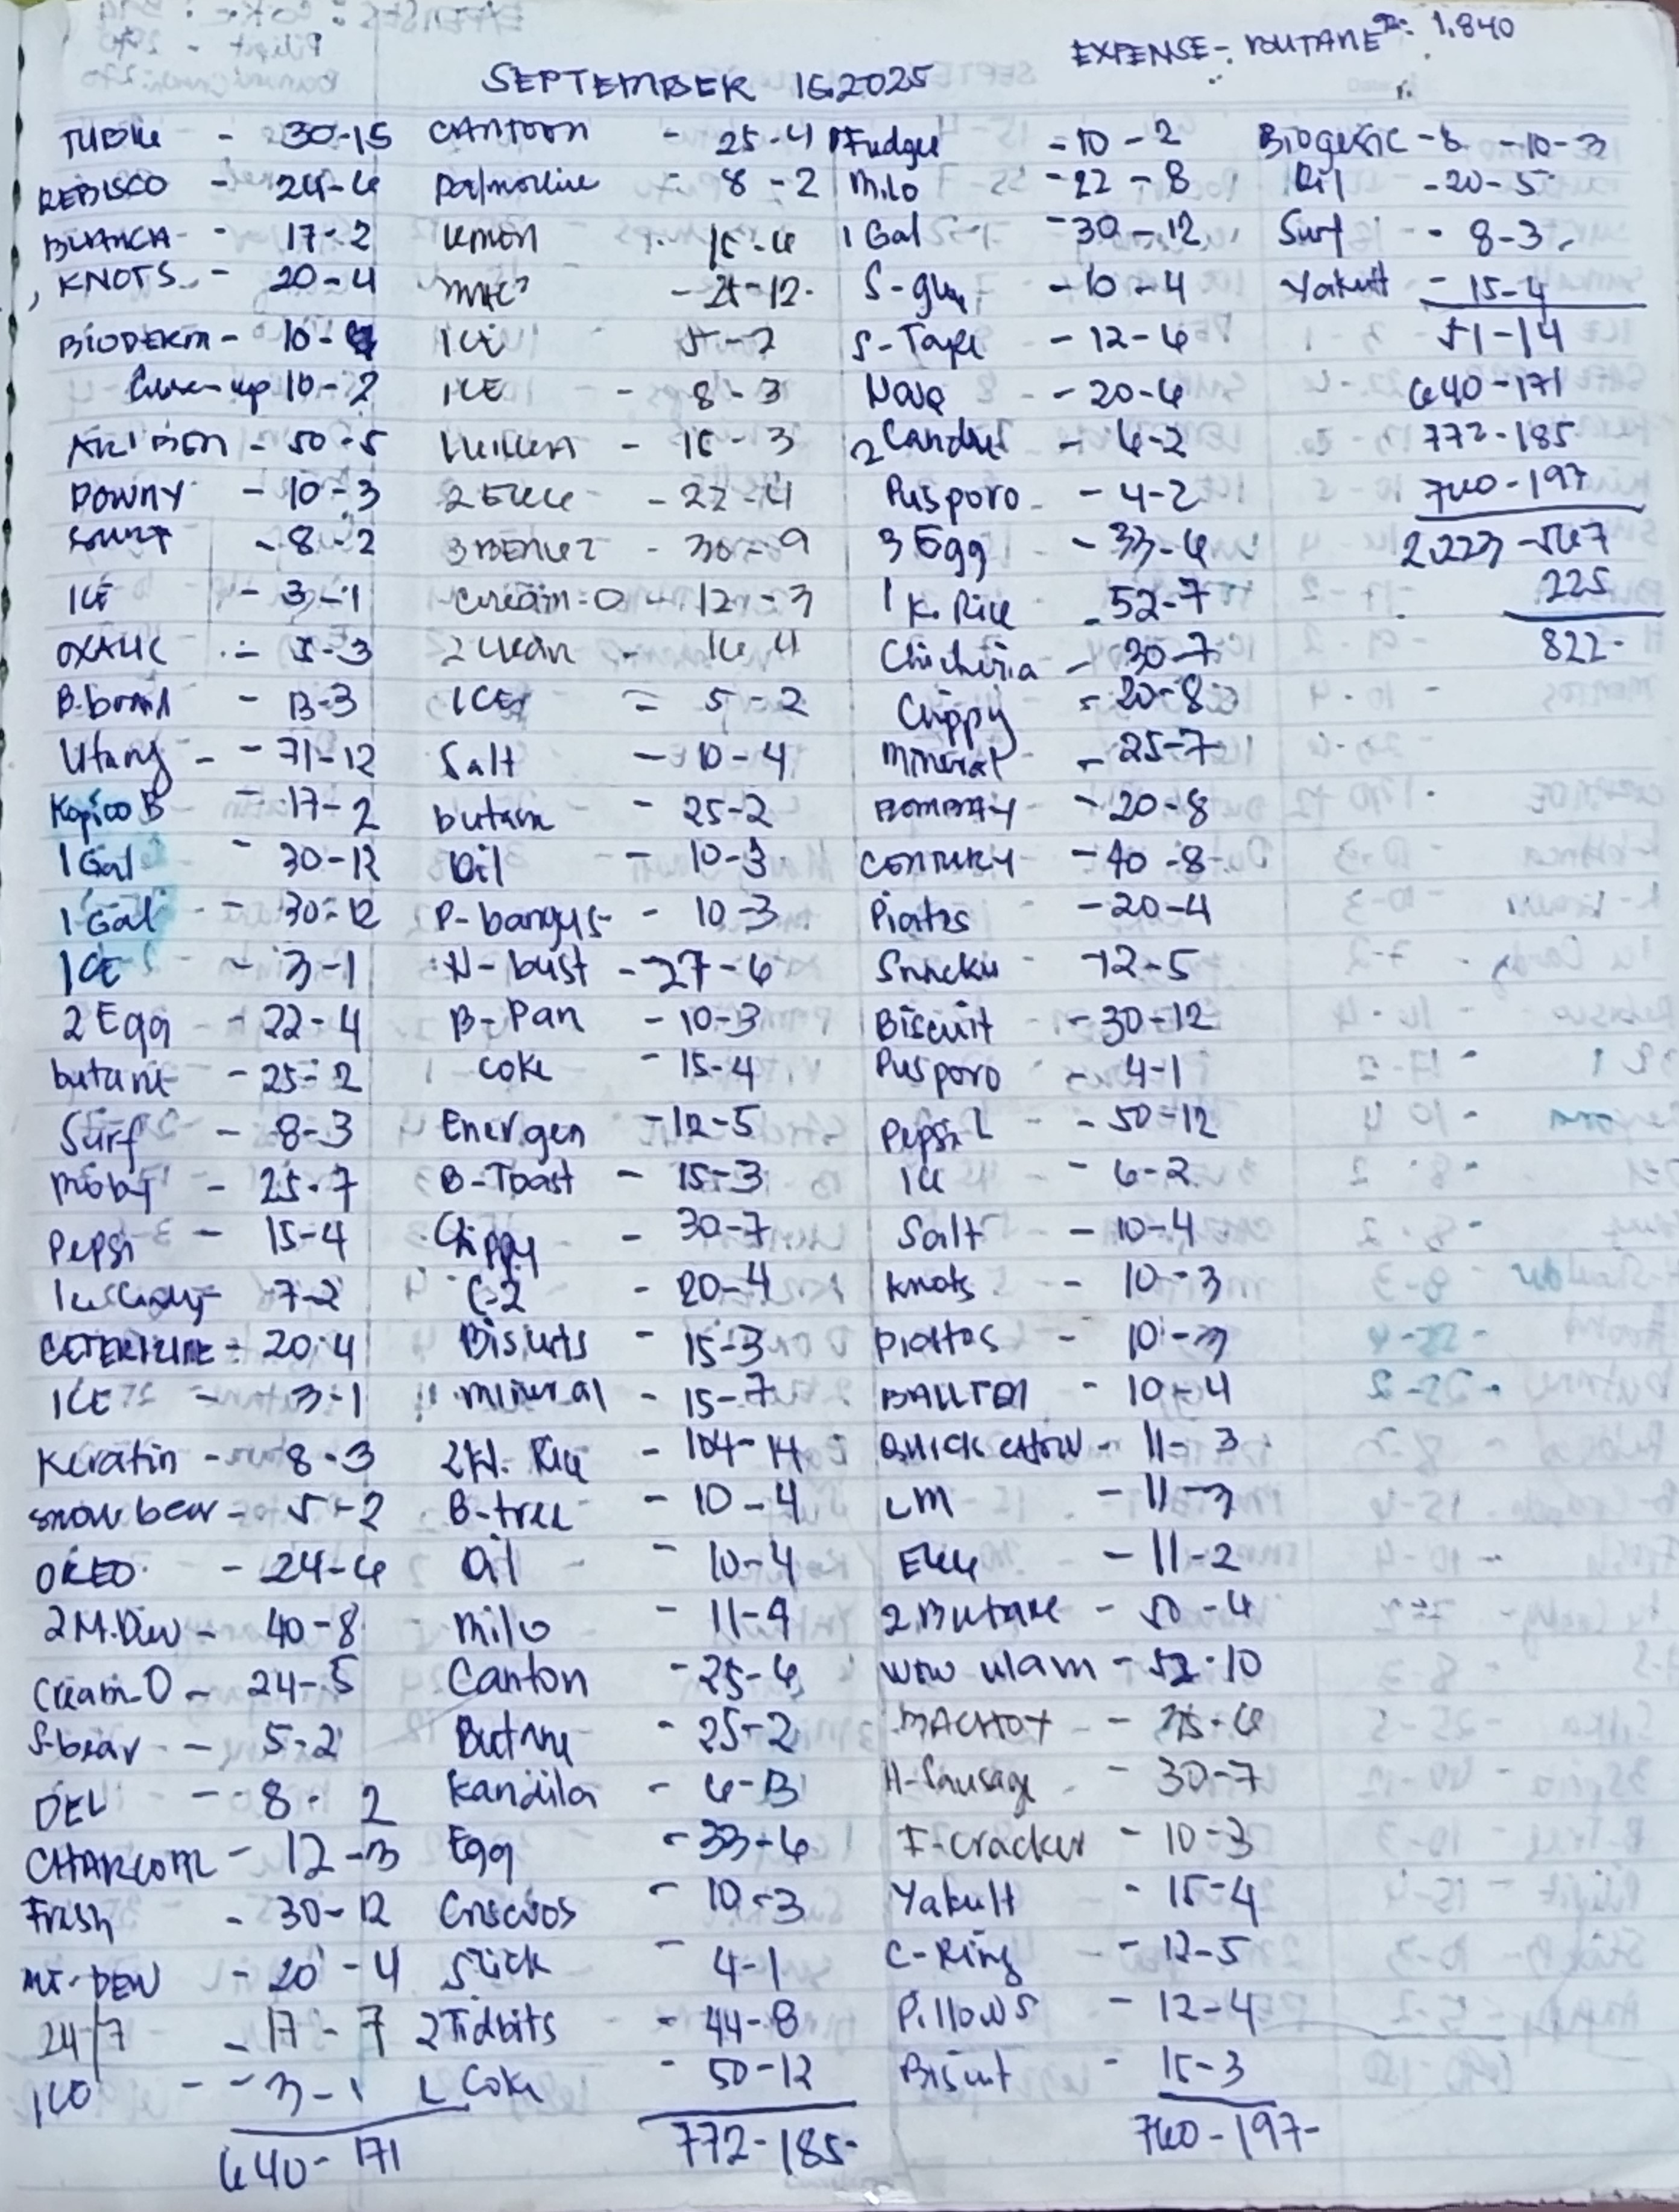 EXPENSE - BUTANE 1,840
SEPTEMBER 16, 2025
30-15
REBISCO - 24-6
BLANCA - 17-2
KNOTS - 20-4
BIODERM - 10-
Close-up 10-2
50-5
DOWNY - 10-3
SURF - 8-2
ICE - 3-1
OXALIC - 5-3
B. brand - 13-3
Utang - 71-12
Kopico B - 17-2
1 Gal - 30-12
1 Gal - 30-12
ICE - 3-1
2 Egg - 22-4
butane - 25-2
Surf - 8-3
Moby - 25-7
Pepsi - 15-4
7-2
CETERIZINE - 20-4
ICE - 3-1
Keratin - 8-3
snow bear - 5-2
OREO - 24-6
2 M. Dew - 40-8
Cream-O - 24-5
S-bear - 5-2
DEL - 8-2
12-3
Fresh - 30-12
MT-DEW - 20-4
24/7 - 17-7
ICE - 3-1
640-171
CANTOON - 25-4
Palmolive - 8-2
Lemon - 15-6
12
ICE 5-2
ICE - 8-3
15-3
22-4
30-9
Cream-O - 12-3
4
ICE = 5-2
Salt - 10-4
butane - 25-2
Oil - 10-3
P-bangus - 10-3
N-bust - 27-6
B-Pan - 10-3
Coke - 15-4
Energen - 12-5
B-Toast - 15-3
Chippy - 30-7
C-2 - 20-4
Bisuits - 15-3
mineral - 15-7
2K. Rice - 104-14
B-tree - 10-4
Oil - 10-4
Milo - 11-4
Canton - 25-6
Butane - 25-2
Kandila - 6-13
Egg - 33-6
10-3
Stick - 4-1
2 Tidbits - 44-8
L Coke - 50-12
772-185
Fudgee - 10-2
Milo - 22-8
1 Gal - 30-12
S-glue - 10-4
S-Tape - 12-6
Nova - 20-6
2 Candies - 6-2
Pusporo - 4-2
3 Egg - 33-6
1 K. Rice - 52-7
Chicheria - 30-7
Chippy - 20-8
Mineral - 25-7
BOMBAY - 20-8
CENTURY - 40-8
Piattos - 20-4
Snacku - 12-5
Biscuit - 30-12
Pusporo - 4-1
Pepsi L - 50-12
ICE - 6-2
Salt - 10-4
Knots - 10-3
Piattos - 10-3
10-4
QUICK CHOW - 11-3
LM - 11-3
11-2
2 Butane - 50-4
WOW ulam - 52-10
6
H-Sausage - 30-7
F-cracker - 10-3
Yakult - 15-4
C-Ring - 12-5
Pillows - 12-4
Bisuit - 15-3
760-197
Biogesic - 8 - 10-3
Oil - 20-5
Surf - 8-3
Yakult - 15-4
51-14
640-171
772-185
760-197
2,223-567
225
822